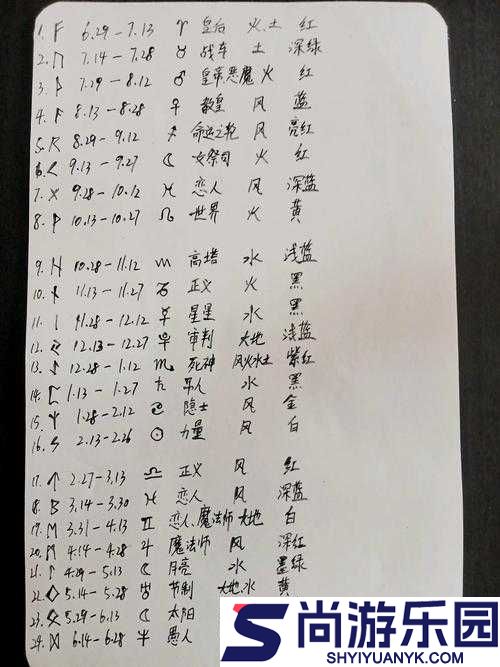 1. ᚠ 6.29-7.13 ♈ 皇后 火、土 红
2. ᚢ 7.14-7.28 ♉ 战车 土 深绿
3. ᚦ 7.29-8.12 ♂ 皇帝恶魔 火 红
4. ᚨ 8.13-8.28 ♀ 教皇 风 蓝
5. ᚱ 8.29-9.12 ♐ 命运之轮 风 亮红
6. ᚲ 9.13-9.27 ☾ 女祭司 火 红
7. ᚷ 9.28-10.12 ♓ 恋人 风 深蓝
8. ᚹ 10.13-10.27 ♌ 世界 火 黄
9. ᚺ 10.28-11.12 高塔 水 浅蓝
10. ᚾ 11.13-11.27 ♑ 正义 火 黑
11. ᛁ 11.28-12.12 ☿ 星星 水 黑
12. 12.13-12.27 审判 大地 浅蓝
13. 12.28-1.12 ♏ 死神 风火水土 紫红
14. ᛈ 1.13-1.27 ♄ 吊人 水 黑
15. ᛉ 1.28-2.12 ♋ 隐士 风 金
16. ᛊ 2.13-2.26 ☉ 力量 风 白
17. ᛏ 2.27-3.13 ♎ 正义 风 红
18. ᛒ 3.14-3.30 ♓ 恋人 风 深蓝
19. ᛖ 3.31-4.13 ♊ 恋人、魔法师 大地 白
20. ᛗ 4.14-4.28 ♃ 魔法师 风 深红
21. ᛚ 4.29-5.13 ☾ 月亮 水 墨绿
22. ᛜ 5.14-5.28 节制 大地、水 黄
23. ᛟ 5.29-6.13 ☾ 太阳
24. ᛞ 6.14-6.28 愚人
尚游乐园
SHYIYUANYK.COM